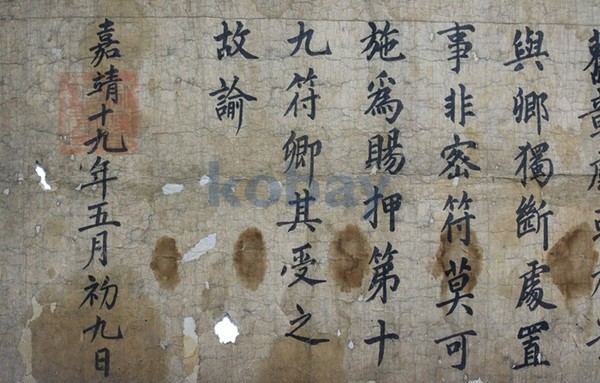 與卿獨斷處置
事非密符莫可
施爲賜押第十
九符卿其受之
故諭
嘉靖十九年五月初九日
kobay